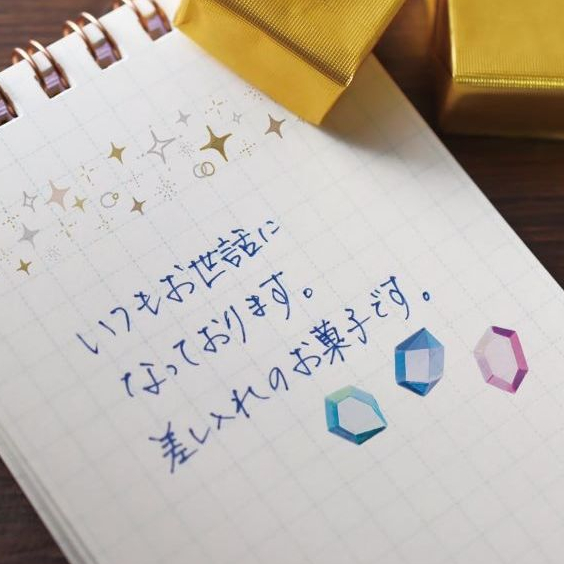 いつもお世話に
なっております。
差し入れのお菓子です。